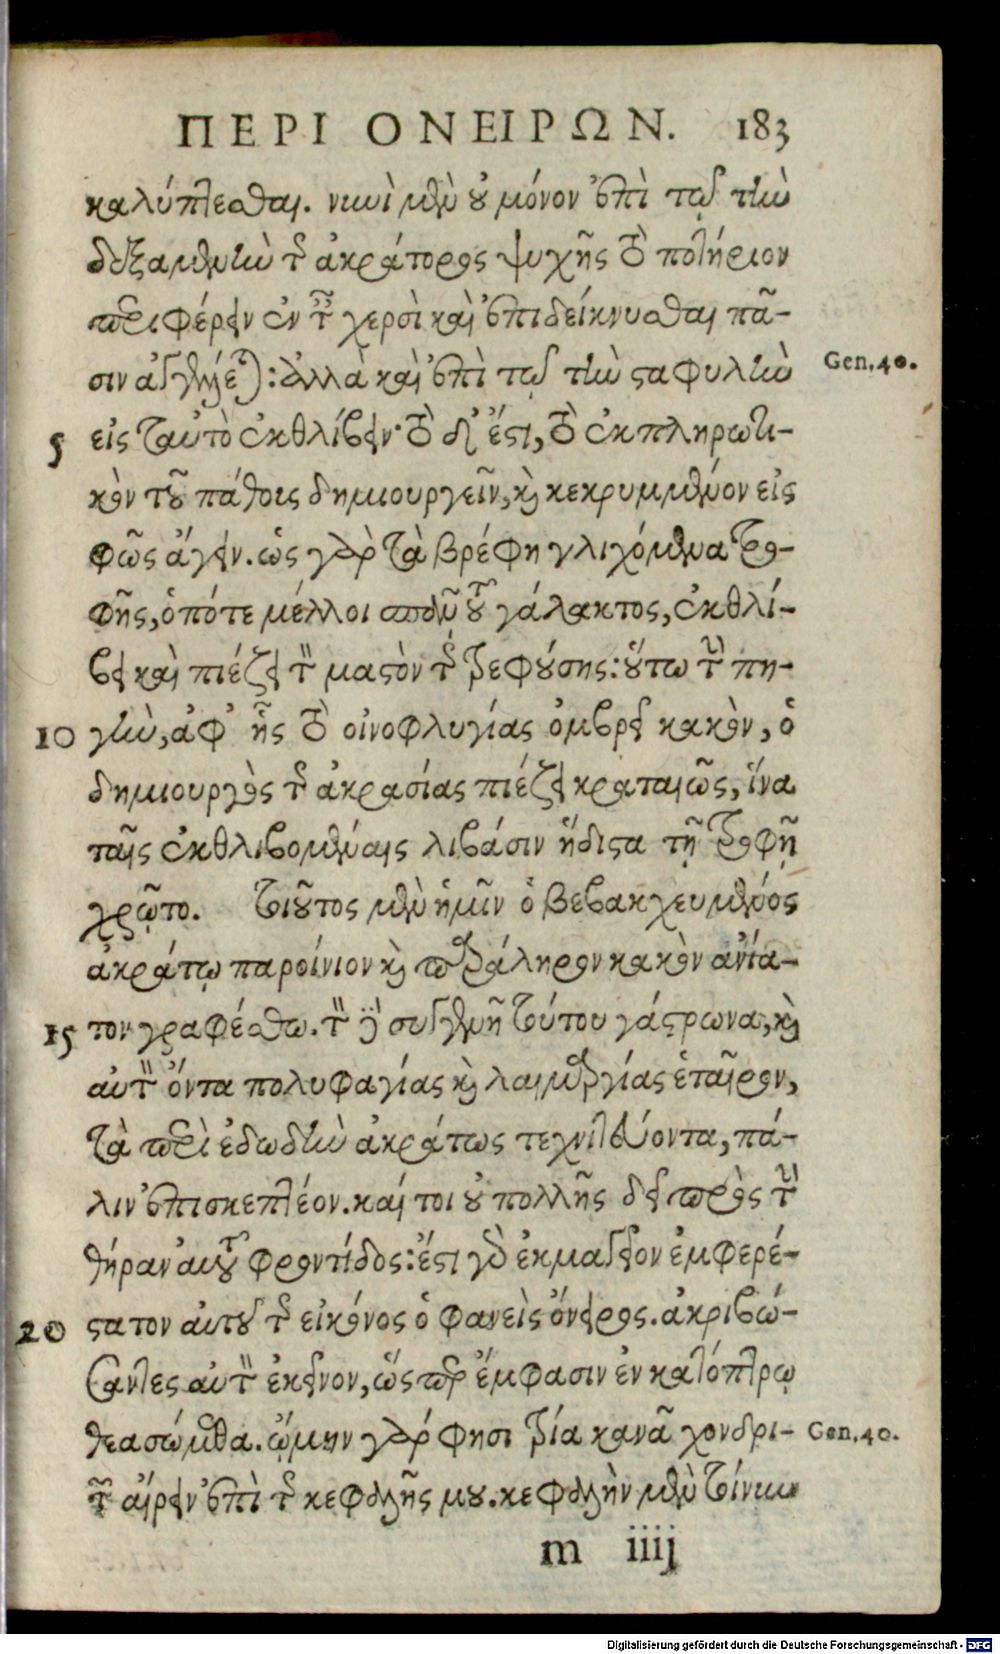 ΠΕΡΙ ΟΝΕΙΡΩΝ. 183
καλύπτεσθαι. νυνὶ μὲν οὐ μόνον ἐπὶ τῷ τὴν
δεξαμενὴν τῆς ἀκράτορος ψυχῆς τὸ ποτήριον
περιφέρειν ἐν ταῖς χερσὶ καὶ ἐπιδείκνυσθαι πᾶ-
σιν ἀγάλλεται: ἀλλὰ καὶ ἐπὶ τῷ τὴν σταφυλὴν
Gen. 40.
5 εἰς ταὐτὸ ἐκθλίβειν· τὸ δ' ἔστι, τὸ ἐκπληρωτι-
κὸν τοῦ πάθους δημιουργεῖν, καὶ κεκρυμμένον εἰς
φῶς ἄγειν. ὡς γὰρ τὰ βρέφη γλιχόμενα τρο-
φῆς, ὁπότε μέλλοι σπᾶν τοῦ γάλακτος, ἐκθλί-
βει καὶ πιέζει τὸν μαστὸν τῆς τρεφούσης: οὕτω τὴν πη-
10 γὴν, ἀφ' ἧς τὸ οἰνοφλυγίας ὀμβρεῖ κακὸν, ὁ
δημιουργὸς τῆς ἀκρασίας πιέζει κραταιῶς, ἵνα
ταῖς ἐκθλιβομέναις λιβάσιν ἥδιστα τῇ τροφῇ
χρῷτο. Τοιοῦτος μὲν ἡμῖν ὁ βεβακχευμένος
ἀκράτῳ παροίνιον καὶ παράληρον κακὸν ἀνία-
15 τον γραφέσθω. τὸν δὲ συγγενῆ τούτου γάστρωνα, καὶ
αὐτὸν ὄντα πολυφαγίας καὶ λαιμαργίας ἑταῖρον,
τὰ περὶ ἐδωδὴν ἀκράτως τεχνιτεύοντα, πά-
λιν ἐπισκεπτέον. καί τοι οὐ πολλῆς δεῖ πρὸς τὴν
θήραν αὐτοῦ φροντίδος: ἔστι γὰρ ἐκμαγεῖον ἐμφερέ-
20 στατον αὐτοῦ τῆς εἰκόνος ὁ φανεὶς ὄνειρος. ἀκριβώ-
σαντες αὐτὸν ἐκεῖνον, ὥσπερ ἔμφασιν ἐν κατόπτρῳ
θεασώμεθα. ᾤμην γὰρ φησι τρία κανᾶ χονδρι-
Gen. 40.
τῶν αἴρειν ἐπὶ τῆς κεφαλῆς μου. κεφαλὴν μὲν τοίνυν
m iiij
Digitalisierung gefördert durch die Deutsche Forschungsgemeinschaft - DFG